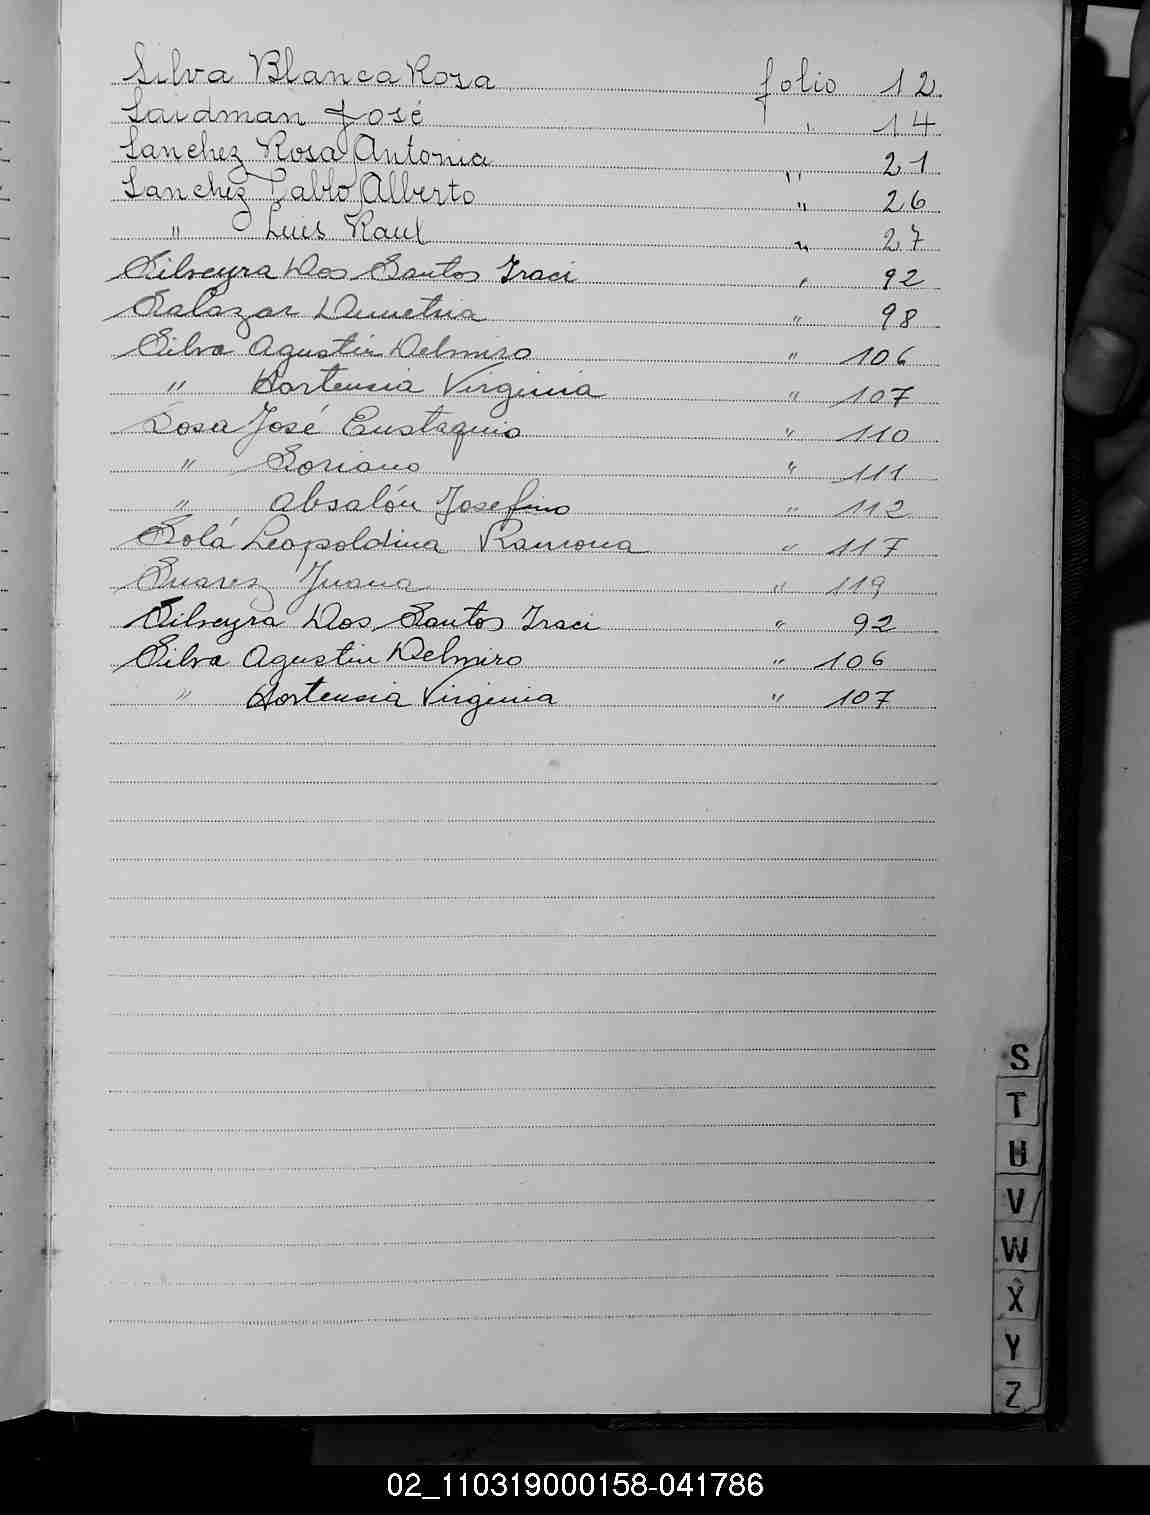 Silva Blanca Rosa folio 12
Saidman José " 14
Sanchez Rosa Antonia " 21
Sanchez Pablo Alberto " 26
" Luis Raul " 27
Silveyra Dos Santos Iraci " 92
Salazar Demetria " 98
Silva Agustin Delmiro " 106
" Hortencia Virginia " 107
Sosa José Eustaquio " 110
" Soriano " 111
" Absalón Josefino " 112
Solá Leopoldina Ramona " 117
Suarez Juana " 119
Silveyra Dos Santos Iraci " 92
Silva Agustin Delmiro " 106
" Hortencia Virginia " 107
S
T
U
V
W
X
Y
Z
02_110319000158-041786